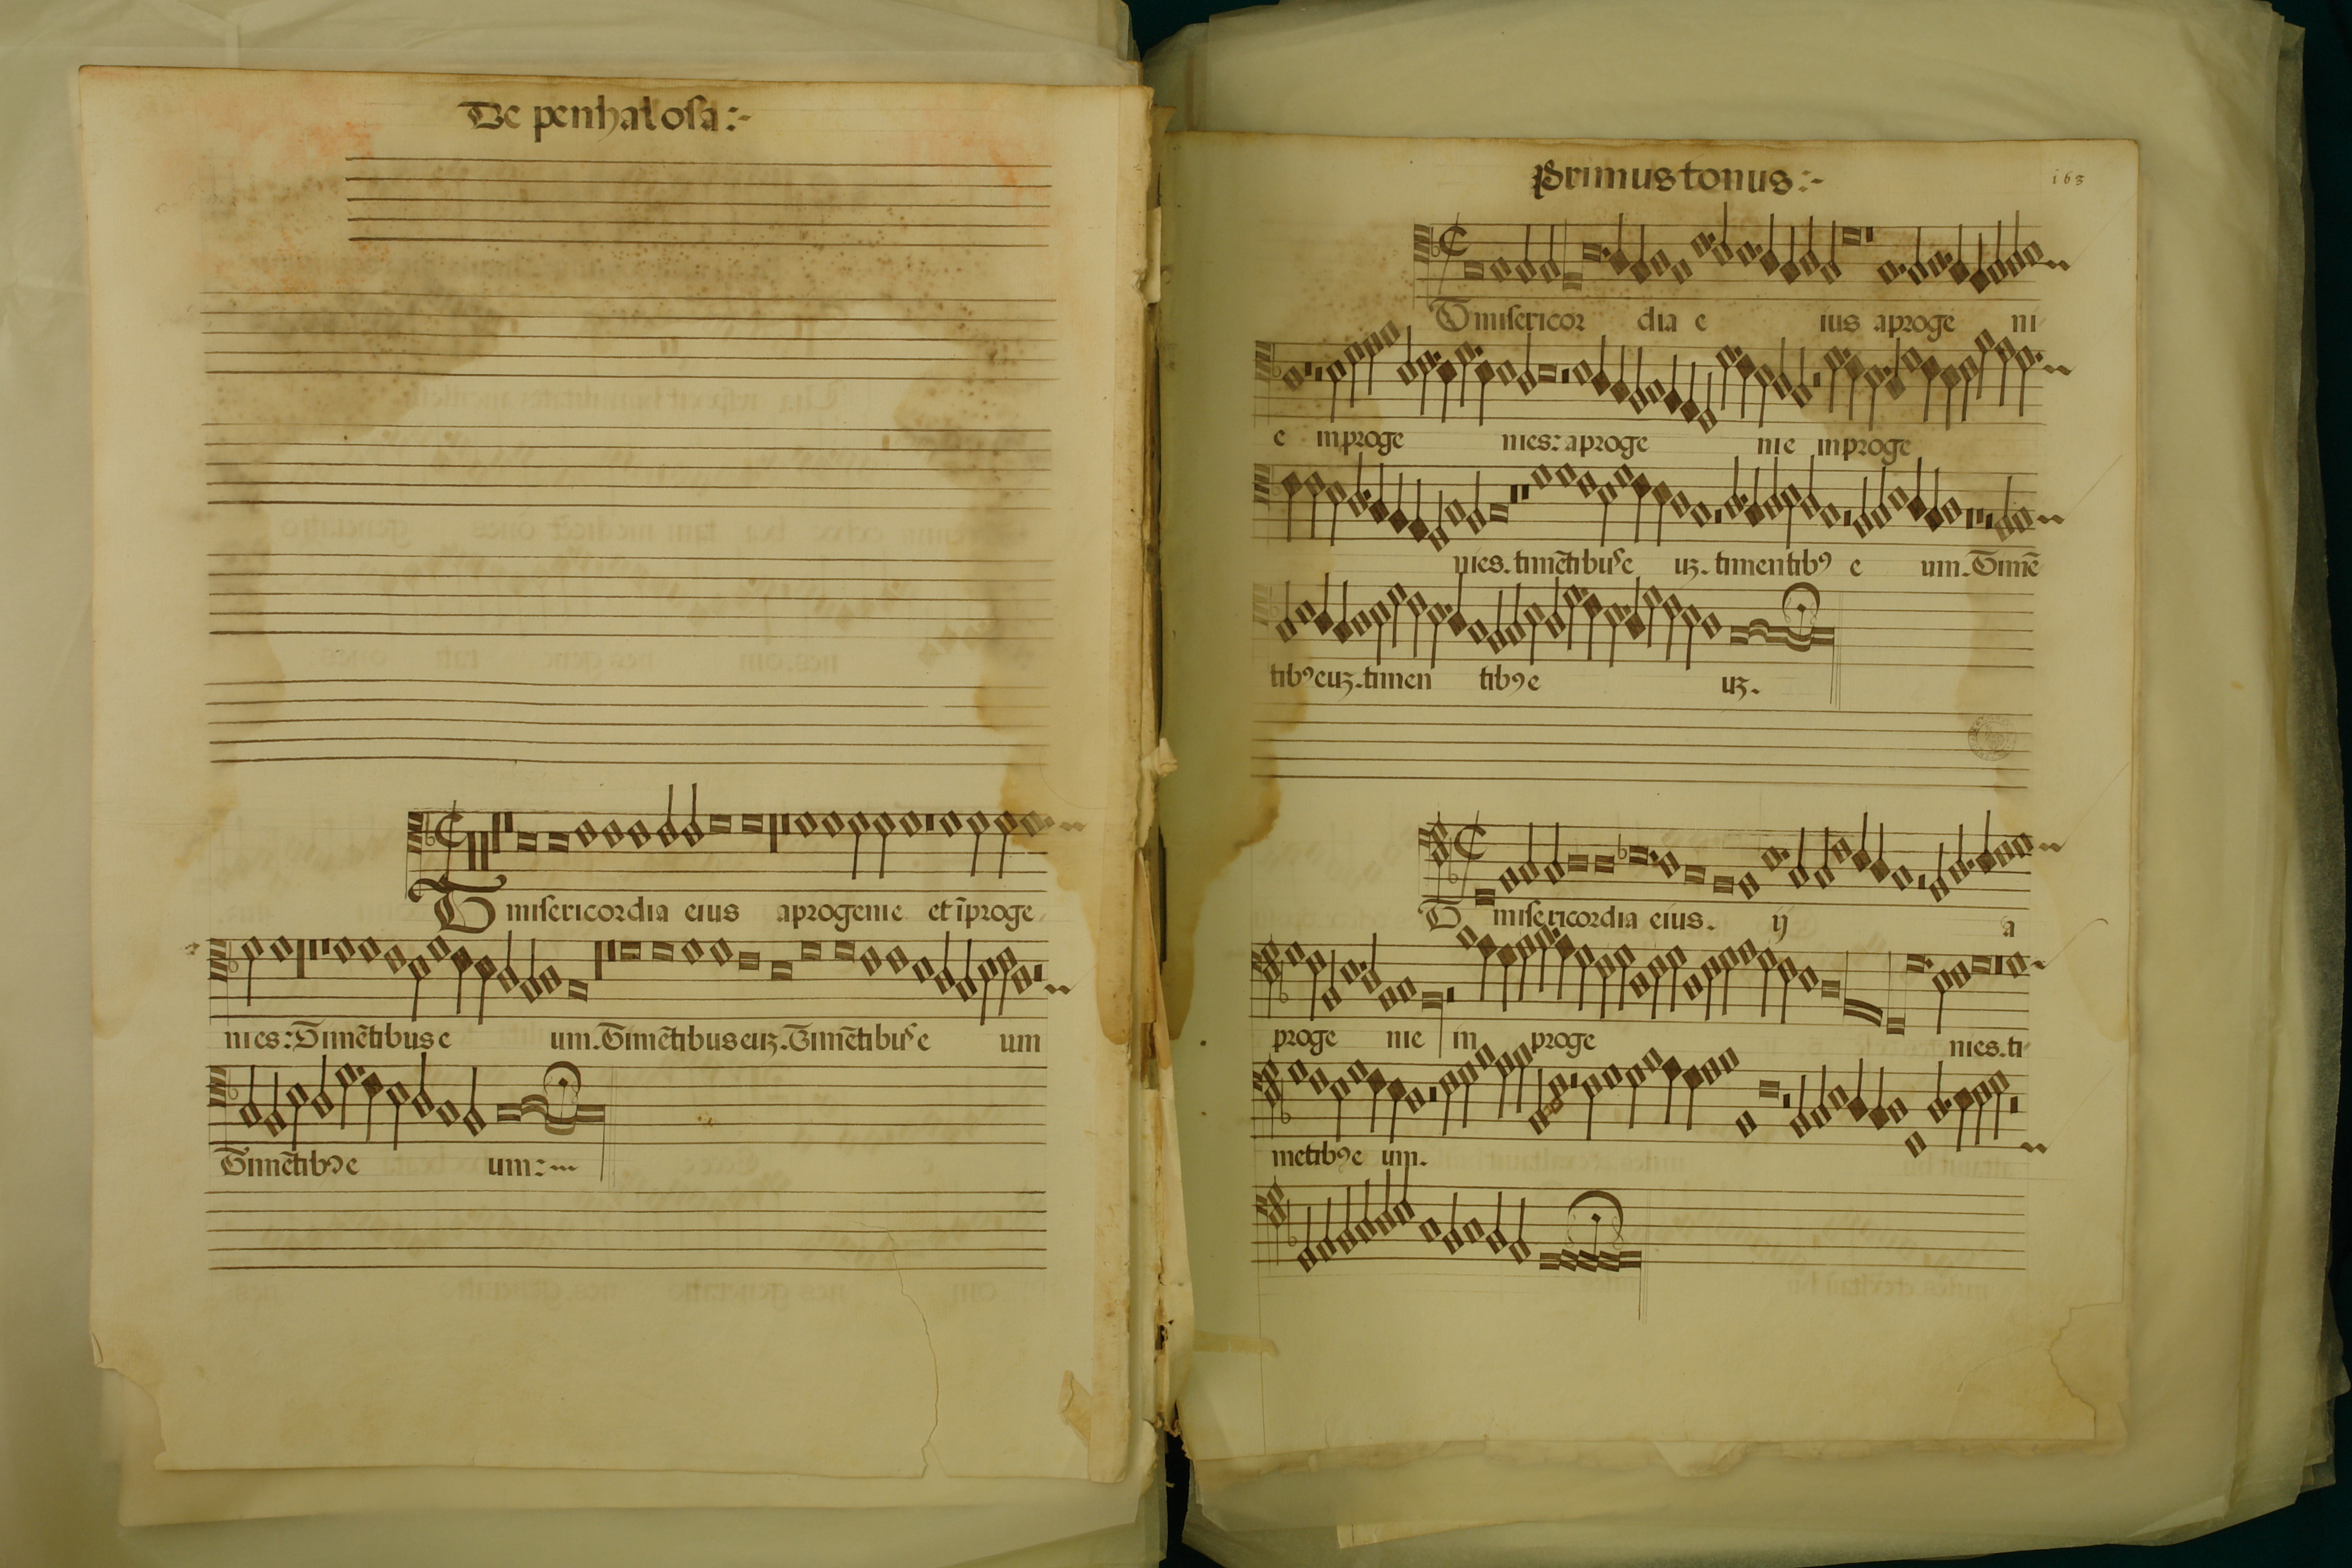 De penhalosa:-
Et misericordia eius aprogenie et ĩproge
nies: Timẽtibus e um. Timẽtibus euz. Timẽtibus e um
Timẽtibꝰ e um:-
Primus tonus:-
163
Et misericor dia e ius aproge ni
e inproge nies: aproge nie inproge
nies. timẽtibus e uz. timentibꝰ e um. Timẽ
tibꝰ euz. timen tibꝰ e uz.
Et misericordia eius. ij a
proge nie in proge nies. ti
metibꝰ e um.